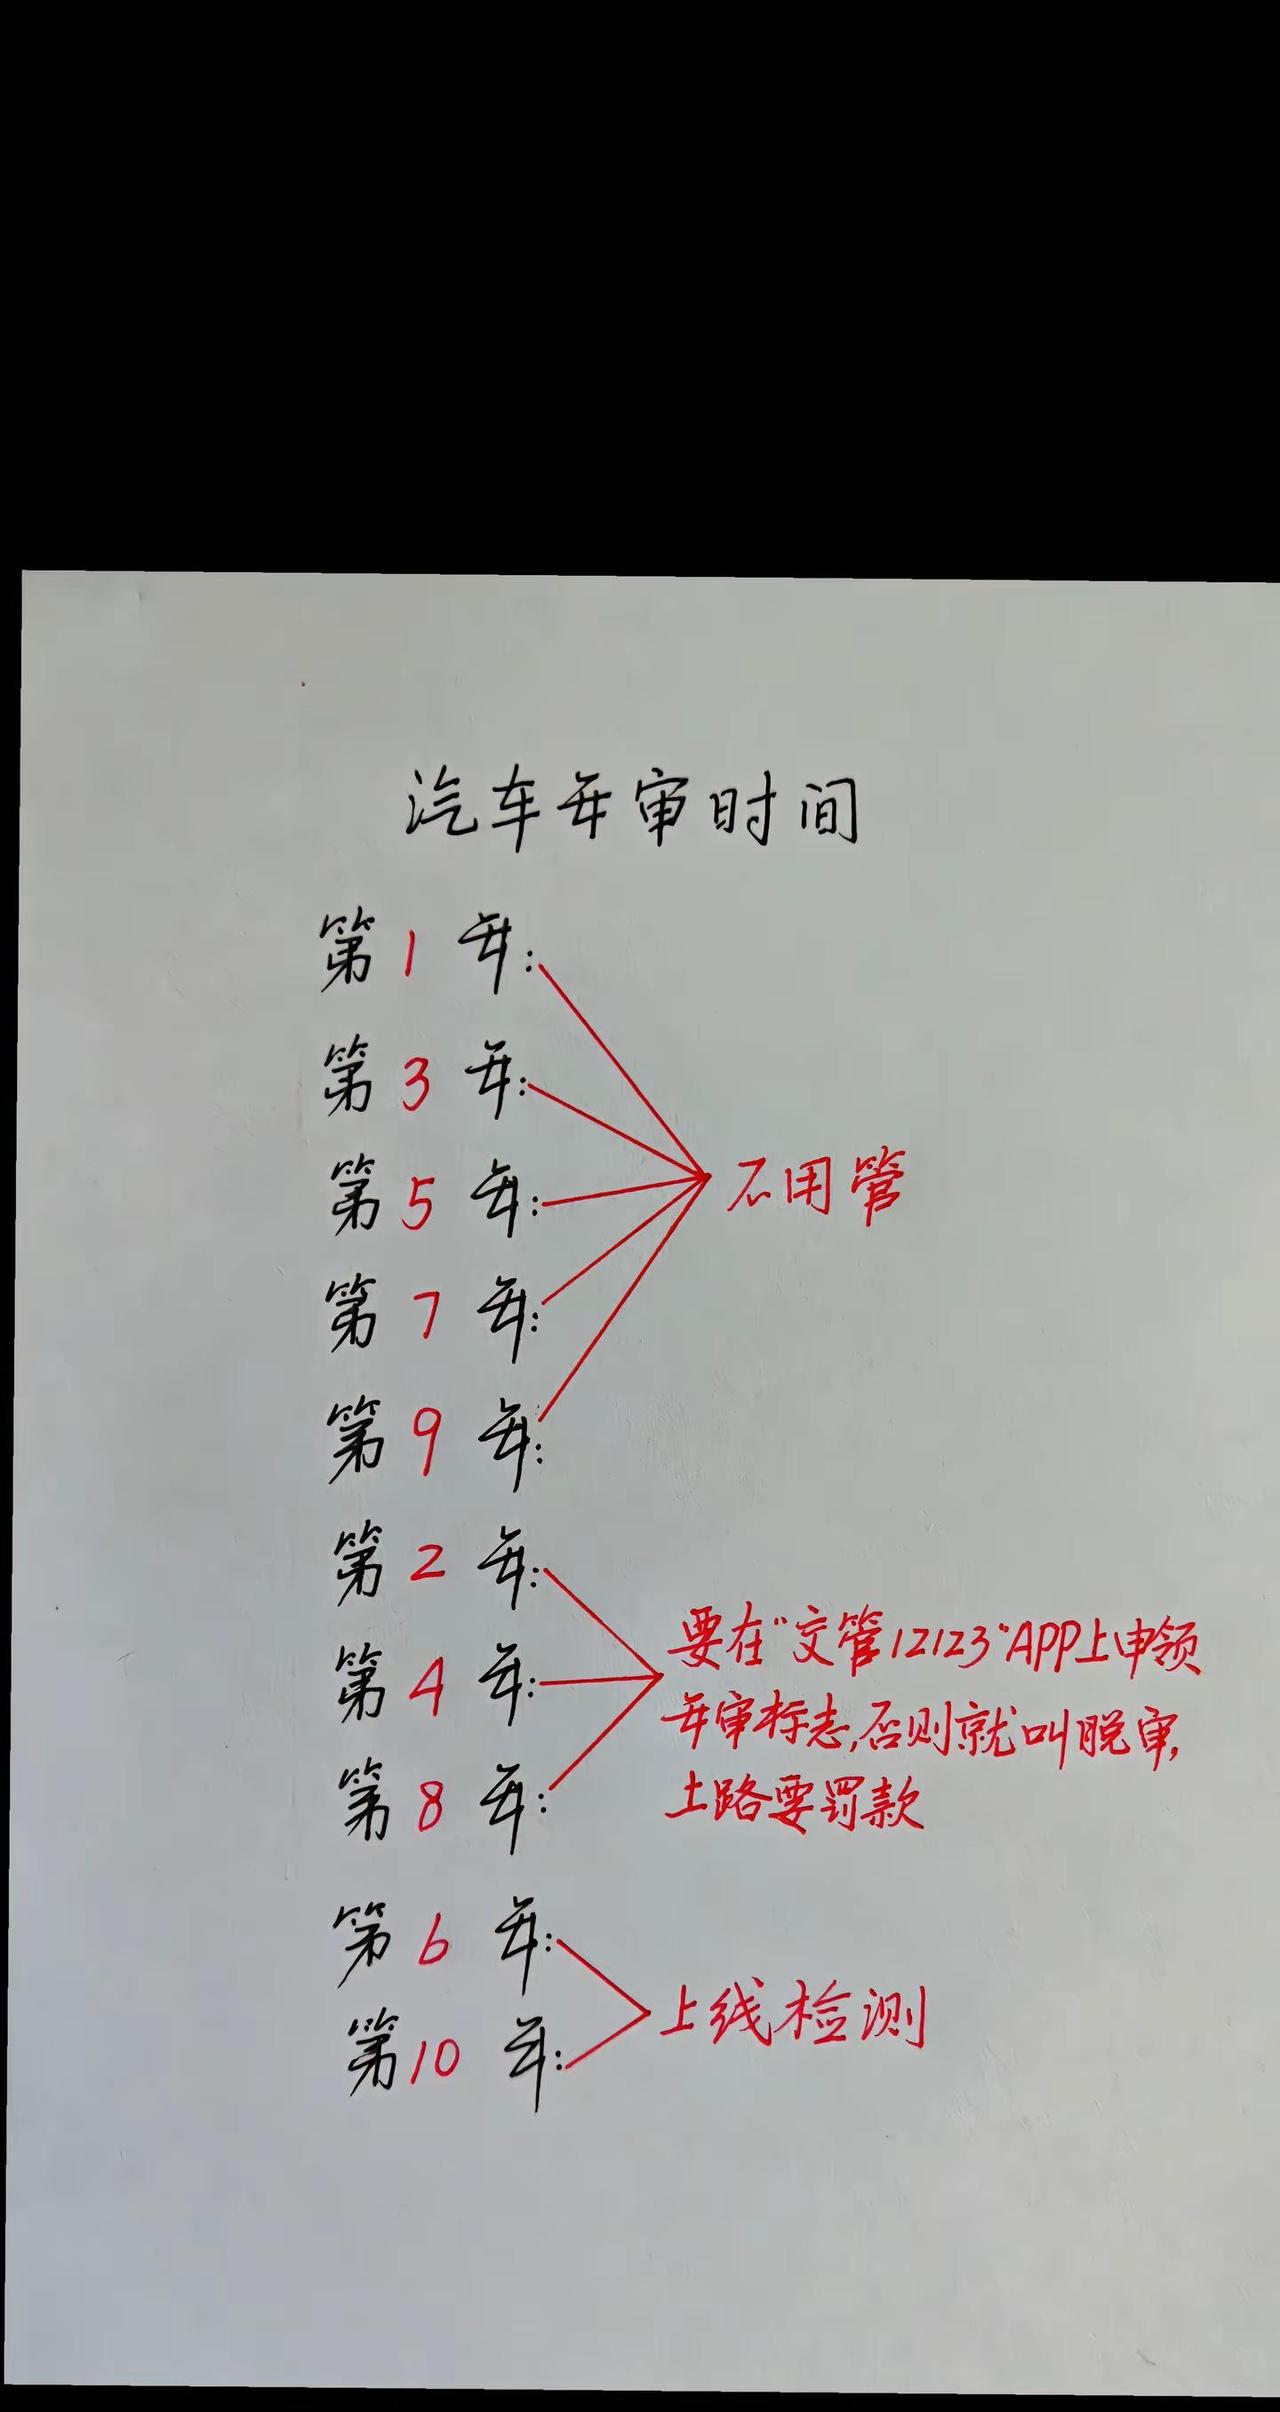 汽车年审时间
第1年:
第3年:
第5年:
第7年:
第9年:
不用管
第2年:
第4年:
第8年:
要在"交管12123"APP上申领
年审标志,否则就叫脱审,
上路要罚款
第6年:
第10年:
上线检测